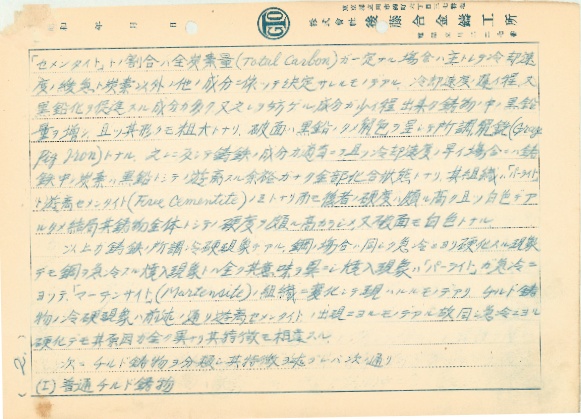 和 年 月 日
GTO
株式會社 後藤合金鑄工所
「セメンタイト」トノ割合ハ全炭素量(Total Carbon)ガ一定ナル場合ハ主トシテ冷却速
度ノ緩急ト炭素以外ノ他ノ成分ニ依ツテ決定サレルモノデアル、冷却速度遅イ程、又
黒鉛化ヲ促進スル成分ガ多ク又之ヲ妨ゲル成分ガ少イ程出来タ鋳物ノ中ノ黒鉛
量ヲ増シ、且ツ其形モ粗大トナリ、破面ハ黒鉛ノタメ鼠色ヲ呈シテ所謂鼠銑(Gray
Pig Iron)トナル、之ニ反シテ鋳鉄ノ成分ガ適當デ且ツ冷却速度ノ早イ場合ニハ鋳
鉄中ノ炭素ハ黒鉛トシテ遊離スル余裕ガナク全部化合状態トナリ、其組織ハ「パーライト」
ト遊離セメンタイト(Free Cementite)ノミトナリ而モ後者ノ硬度ハ頗ル高ク且ツ白色デア
ルタメ結局其鋳物全体トシテノ硬度ヲ頗ル高カラシメ又破面モ白色トナル
以上ガ鋳鉄ノ所謂冷硬現象デアル、鋼ノ場合ハ同ジク急冷ニヨリ硬化スル現象
デモ鋼ヲ急冷スル焼入現象トハ全ク其意味ヲ異ニシ焼入現象ハ「パーライト」ガ急冷ニ
ヨツテ「マーテンサイト」(Martensite)ノ組織ニ変化シテ現ハルルモノデアリ チルド鋳
物ノ冷硬現象ハ前述ノ通リ遊離セメンタイトノ出現ニヨルモノデアル故同ジ急冷ニヨル
硬化デモ其原因ガ全ク異リ其特徴モ相違スル
次ニチルド鋳物ヲ分類シ其特徴ヲ述ブレバ次ノ通リ
(I) 普通チルド鋳物
(2)